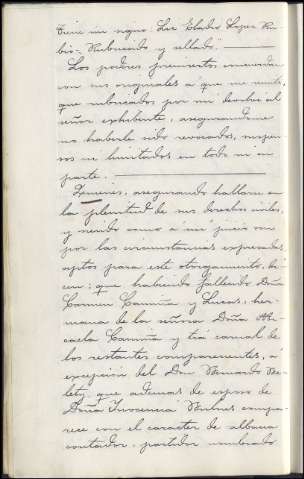 tiene un signo: Lic. Eladio Lopez Ru-
bio - Rubricado y sellado.
Los poderes preinsertos concuerdan
con sus originales á que me remito,
que rubricados por mi devolví al
señor exhibente, asegurándome
no haberle sido revocados, suspen-
sos ni limitados en todo ni en
parte.
, asegurando hallarse en
la plenitud de sus derechos civiles,
y siendo como á mi juicio son
por las circunstancias expresadas
aptos para este otorgamiento, di-
cen: que habiendo fallecido Doña
Carmen y Lucas, her-
mana de la señora Doña Mi-
caela y tia carnal de
los restantes comparecientes, á
excepción del Don Bernardo
que ademas de esposo de
Doña Inocencia compa-
rece con el caracter de albacea
contador-partidor nombrado